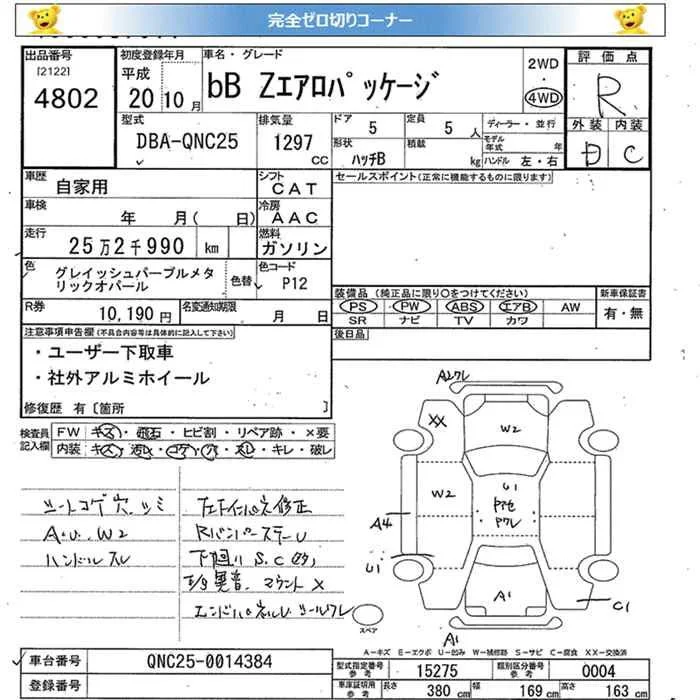 完全ゼロ切りコーナー
出品番号
[2122]
4802
初度登録年月
平成
20 10月
車名・グレード
bB Zエアロパッケージ
2WD
4WD
評価点
R
外装 内装
D C
型式
DBA-QNC25
排気量
1297
CC
ドア 5
定員 5 人
形状 ハッチB
積載 kg
ディーラー・並行
モデル年式 年
ハンドル 左・右
車歴 自家用
シフト CAT
車検 年 月( 日)
冷房 AAC
走行 25万2千990 km
燃料 ガソリン
色 グレイッシュパープルメタ
リックオパール
色替
色コード P12
R券 10,190円
名変通知期限 月 日
セールスポイント(正常に機能するものに限ります)
装備品 (純正品に限り○をつけてください)
新車保証書
PS PW ABS エアB AW
有・無
SR ナビ TV カワ
後日品
注意事項申告欄(不具合内容等は具体的に記入して下さい)
・ユーザー下取車
・社外アルミホイール
修復歴 有〔箇所 〕
検査員
記入欄
FW キズ・飛石・ヒビ割・リペア跡・×要
内装 キズ・汚レ・コゲ・穴・スレ・キレ・破レ
シートコゲ穴、シミ
A.U. W2
ハンドルスレ
左F インパネ修正
RバンパーステーU
下廻り S.C
異音、マウント×
エンドパネルU
A2ワレ
XX
W2
W2
U1
A4
U1
A1
C1
A1
スペア
A-キズ E-エクボ U-凹み W-補修跡 S-サビ C-腐食 XX-交換済
車台番号 QNC25-0014384
登録番号
型式指定番号
参考
15275
類別区分番号
参考
0004
車庫証明用
参考
長さ 380 cm
幅 169 cm
高さ 163 cm